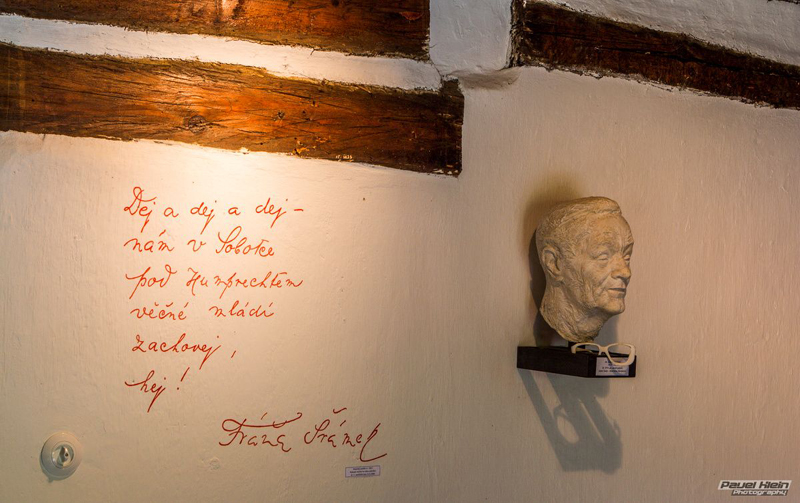 Dej a dej a dej –
nám v Sobotce
pod Humprechtem
věčné mládí
zachovej,
hej!
Fráňa Šrámek
Pavel Klein
Photography